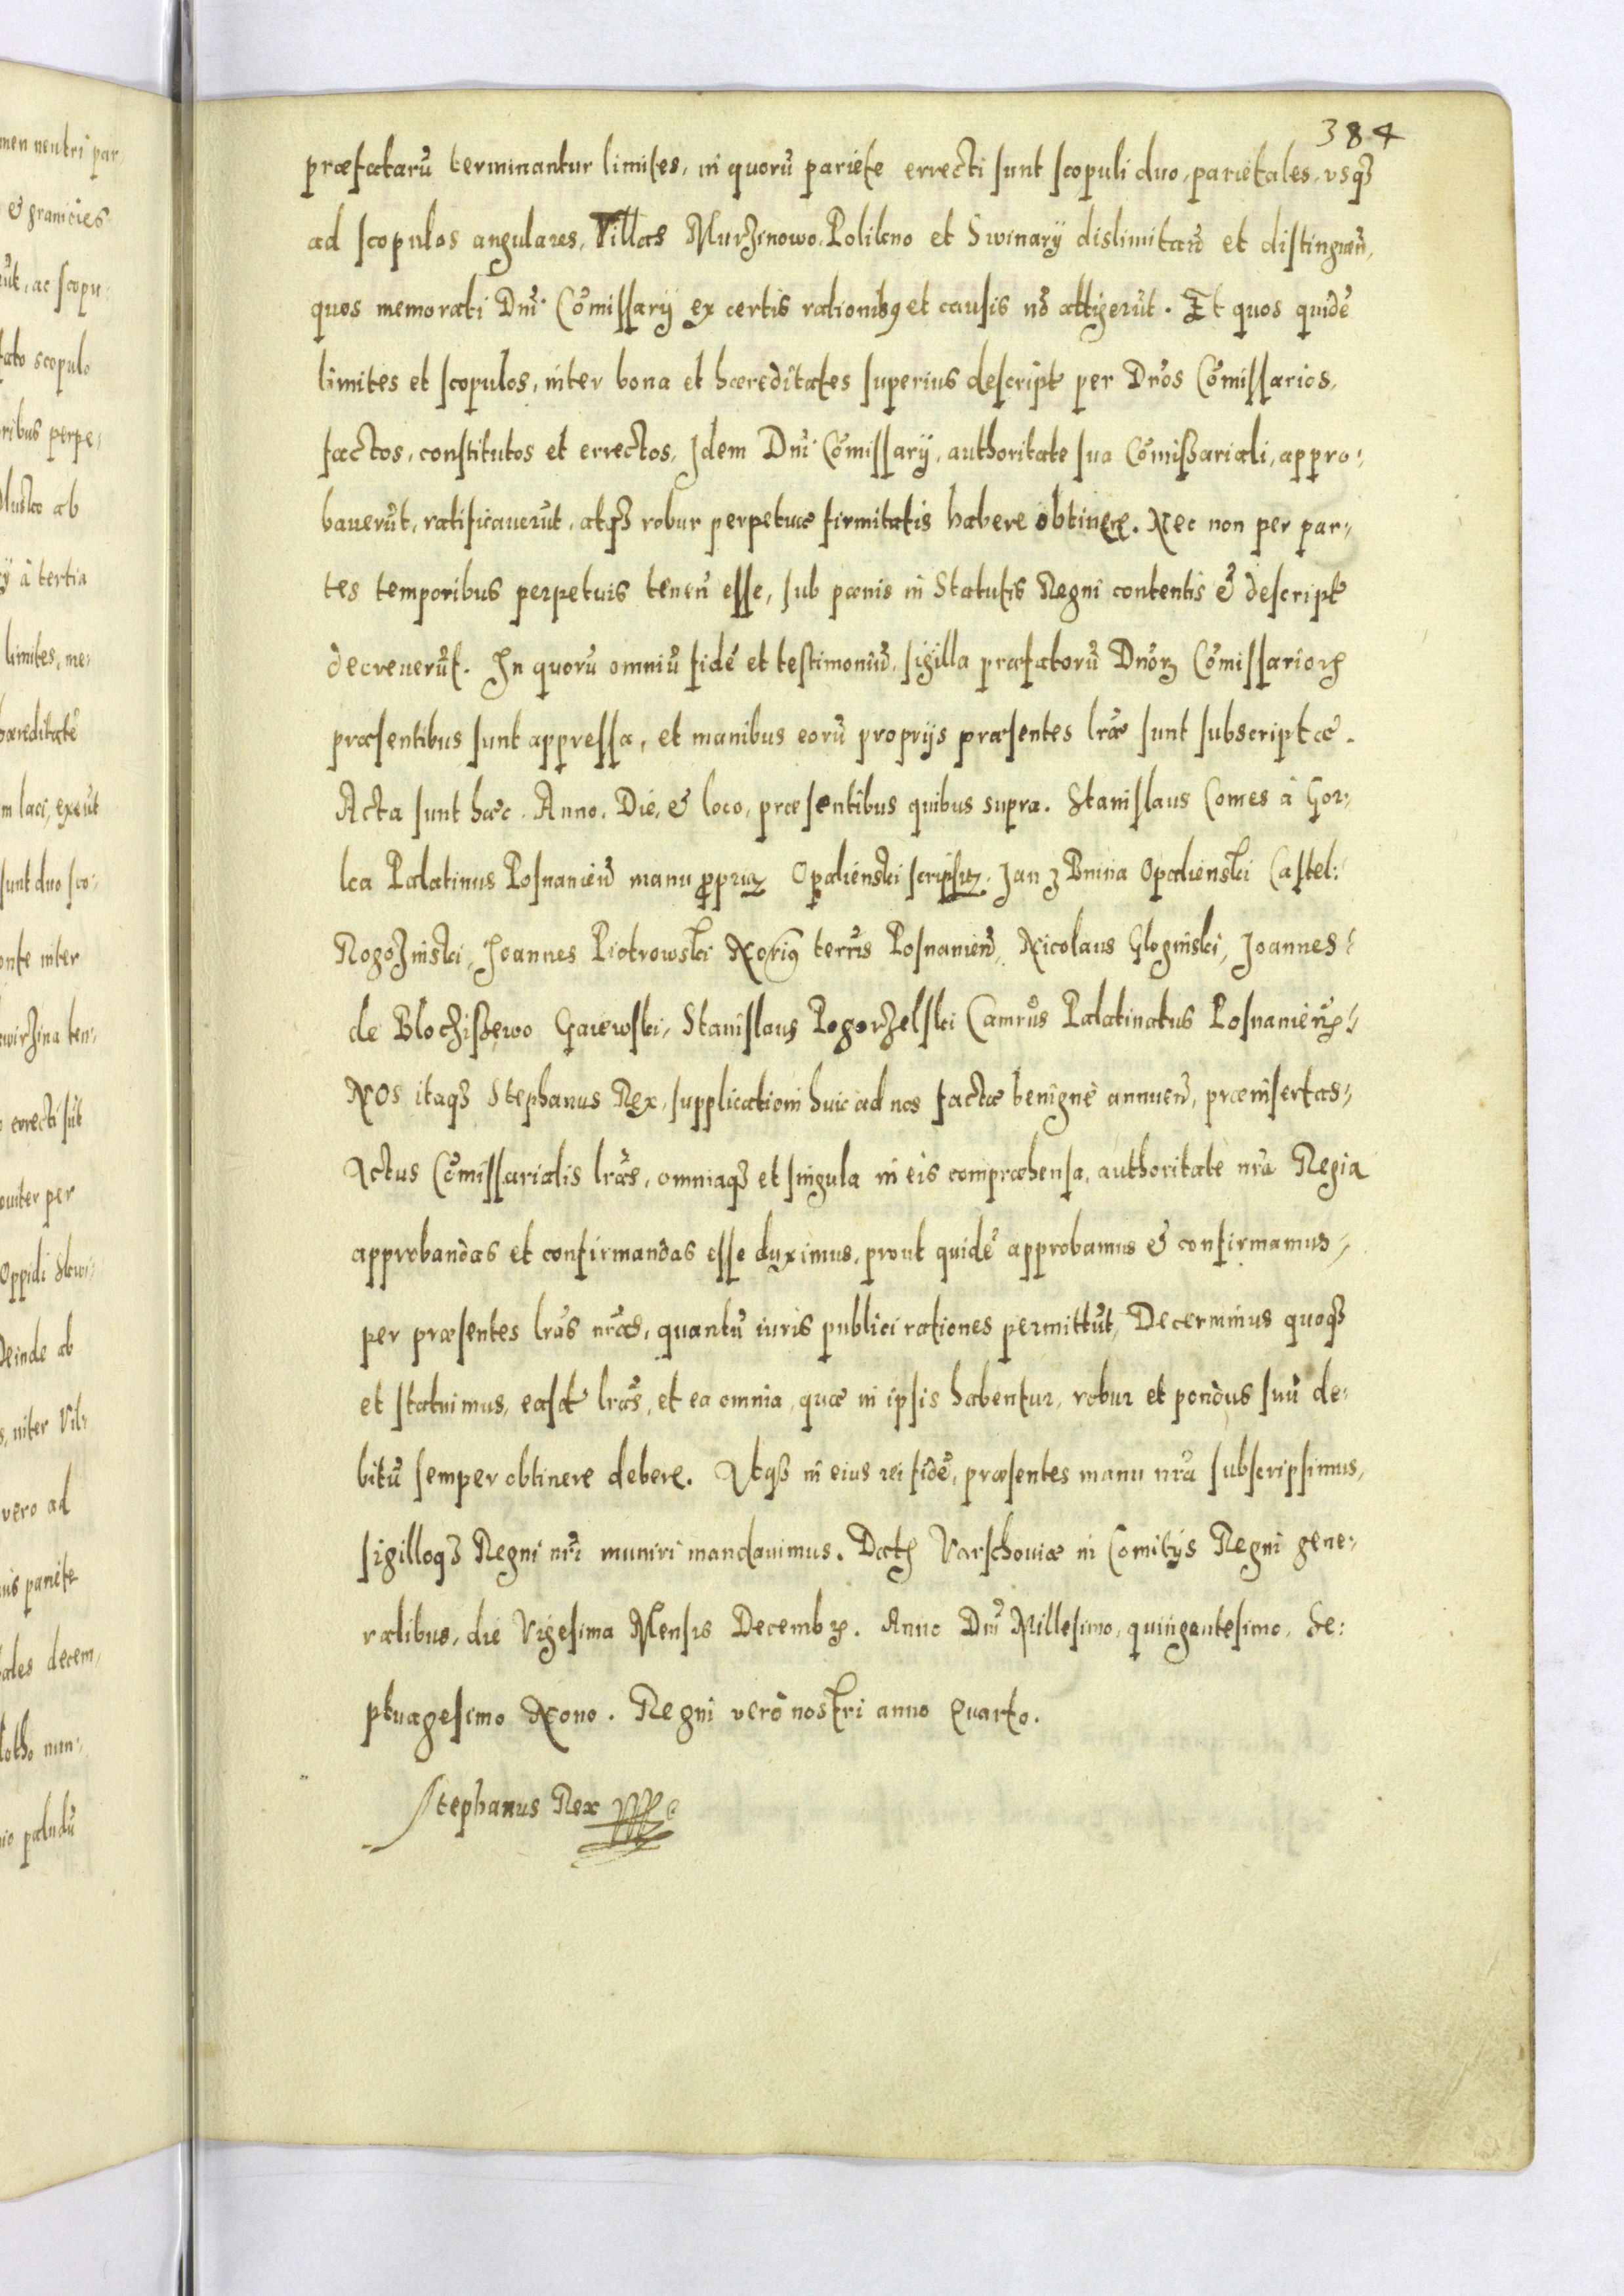 384
præfatarũ terminantur limites, in quorũ pariete errecti sunt scopuli duo, parietales, vsqȝ
ad scopulos angulares, Villas Murzinowo, Polikno et Swinary dislimitañ et distinguẽn,
quos memorati Dñi Cõmissarÿ ex certis rationibꝰ et causis nõ attigerũt. Et quos quidẽ
limites et scopulos, inter bona et hæreditates superius descript per Dños Cõmissarios,
factos, constitutos et errectos, Jdem Dñi Cõmissarÿ, authoritate sua Cõmißariali, appro:
bauerũt, ratificauerũt, atqȝ robur perpetuæ firmitatis habere obtinere. Nec non per par,
tes temporibus perpetuis teneñ esse, sub pœnis in Statutis Regni contentis & descript
decreuerũt. In quorũ omniũ fidẽ et testimoniũ, sigilla præfatorũ Dñoꝝ Cõmissarioꝝ
præsentibus sunt appressa, et manibus eorũ proprÿs præsentes lr̃æ sunt subscriptæ.
Acta sunt hæc. Anno, Die, & loco, præsentibus quibus supra. Stanislaus Comes à Gor,
ka Palatinus Posnanieñ manu ꝓpria. Opalienski scripsit. Jan z Bnina Opalienski Castel:
Rogozinski, Joannes Piotrowski Noriꝰ terrĩs Posnanieñ, Nicolaus Gloginski, Joannes
de Blochißewo Gaiewski, Stanislaus Pogorzelski Camr̃us Palatinatus Posnanieñ.
NOs itaqȝ Stephanus Rex, supplicationi huic ad nos factæ benignè annueñ, præinsertas
Actus Cõmissarialis lr̃as, omniaqȝ et singula in eis compræhensa, authoritate nr̃a Regia
approbandas et confirmandas esse duximus, prout quidẽ approbamus & confirmamus,
per præsentes lr̃as nr̃as, quantũ iuris publici rationes permittũt, Decernimus quoqȝ
et statuimus, easd lr̃as, et ea omnia, quæ in ipsis habentur, robur et pondus suũ de:
bitũ semper obtinere debere. Atqȝ in eius rei fidẽ, præsentes manu nr̃a subscripsimus,
sigilloqȝ Regni nr̃i muniri mandauimus. Datꝭ Varschouiæ in Comitÿs Regni gene:
ralibus, die Vigesima Mensis Decembꝝ. Anno Dñi Millesimo, quingentesimo, Se:
ptuagesimo Nono. Regni verò nostri anno Quarto.
Stephanus Rex